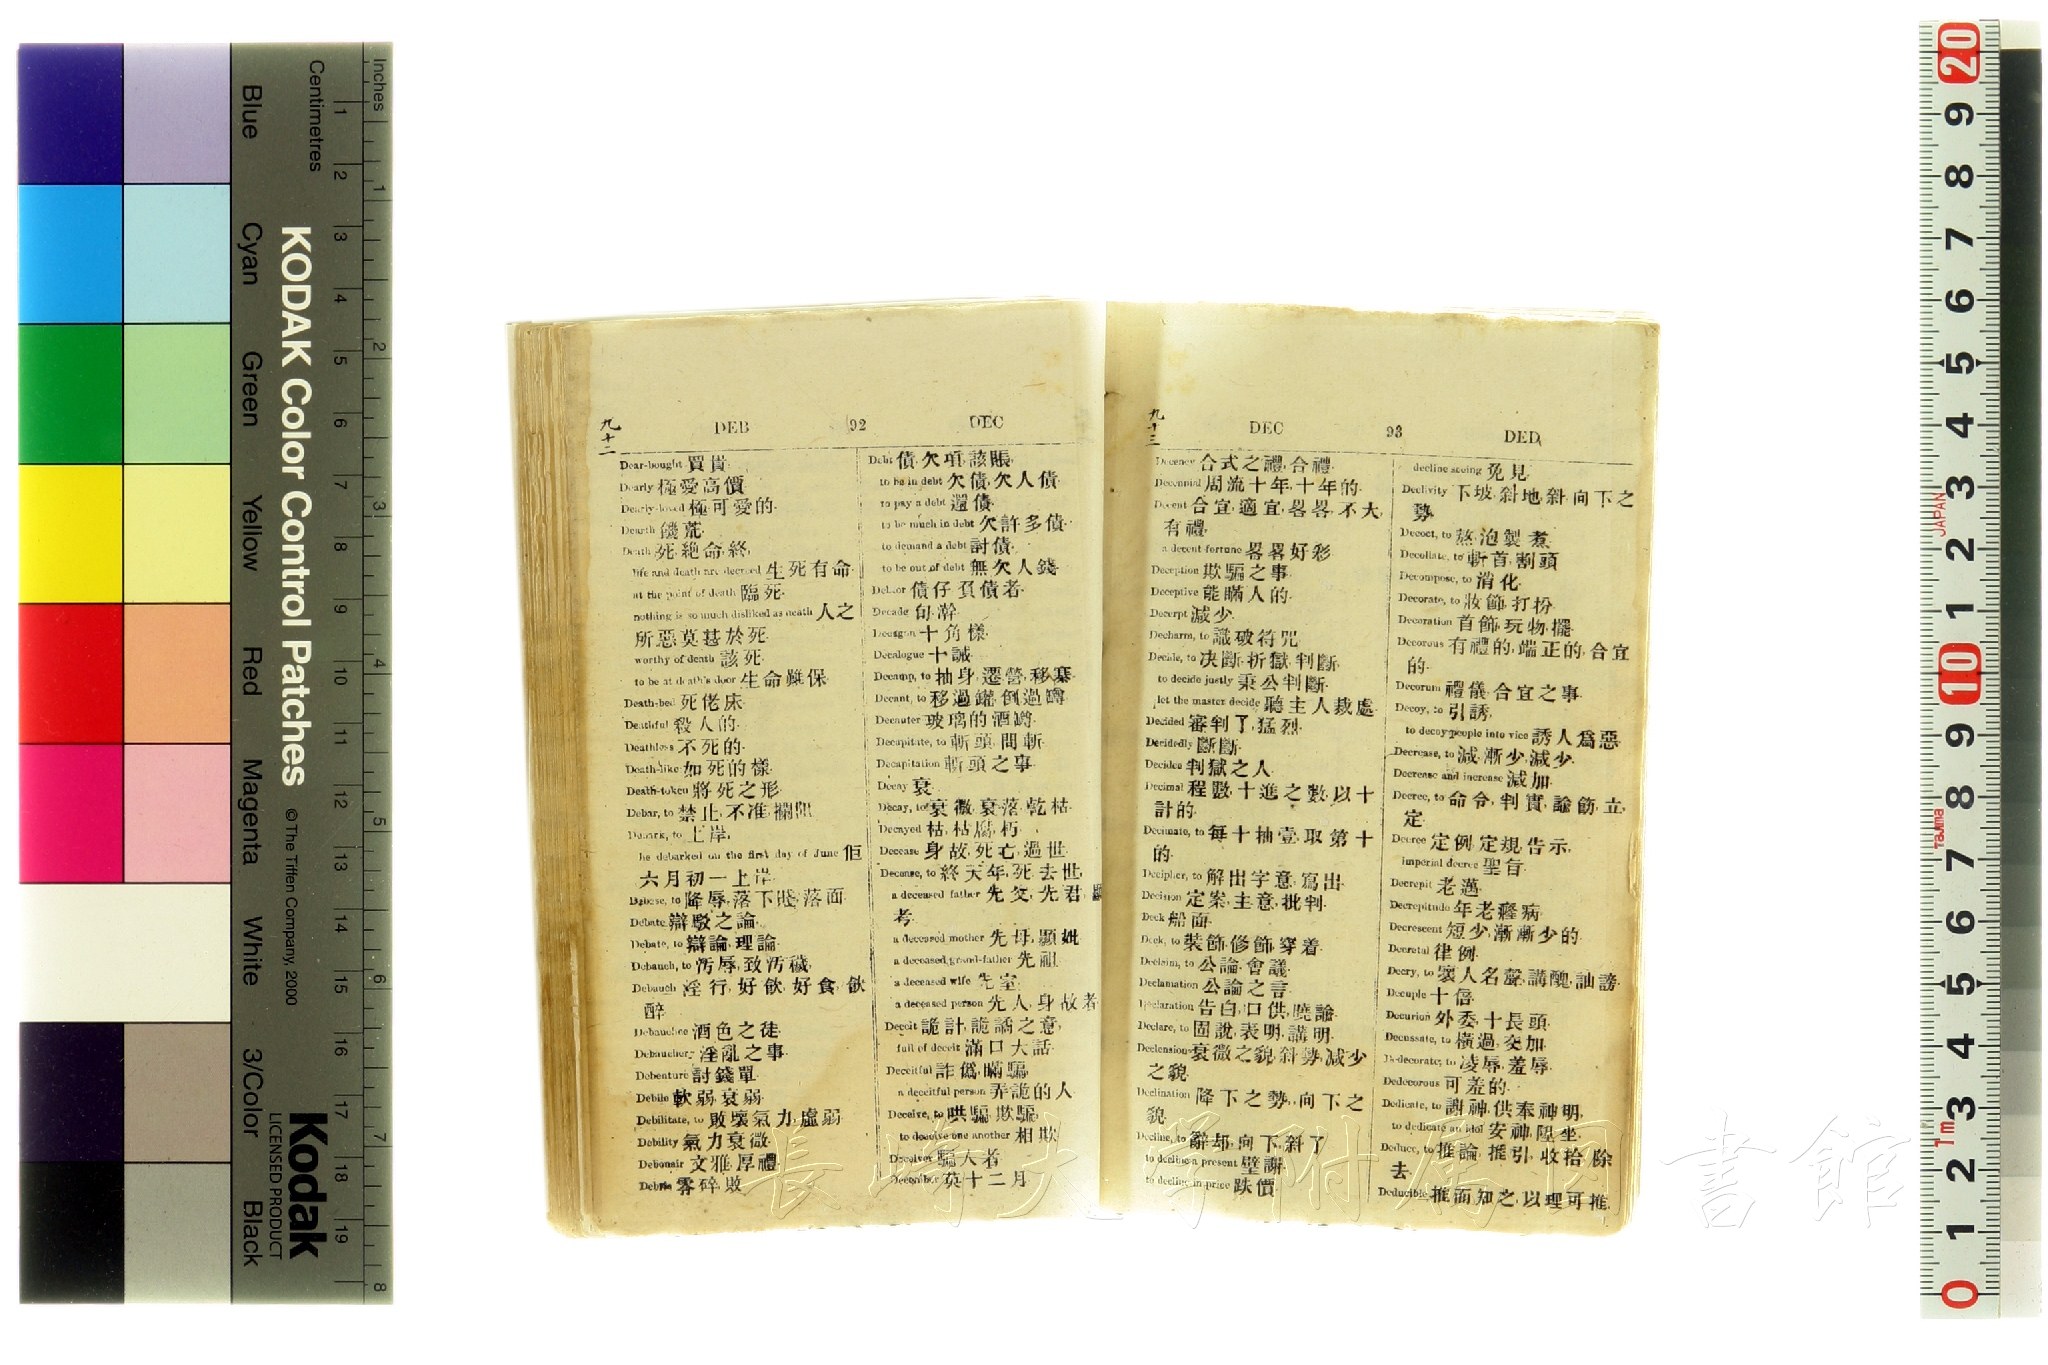 Inches
Centimetres
KODAK Color Control Patches
© The Tiffen Company, 2000
Kodak
LICENSED PRODUCT
Blue
Cyan
Green
Yellow
Red
Magenta
White
3/Color
Black
九十二
DEB 92 DEC
Dear-bought 買貴
Dearly 極愛高價
Dearly-loved 極可愛的
Dearth 饑荒
Death 死, 絕命, 終
life and death are decreed 生死有命
at the point of death 臨死
nothing is so much disliked as death 人之
所惡莫甚於死
worthy of death 該死
to be at death's door 生命難保
Death-bed 死佬床
Deathful 殺人的
Deathless 不死的
Death-like 如死的樣
Death-token 將死之形
Debar, to 禁止, 不准, 攔阻
Debark, to 上岸
he debarked on the first day of June 佢
六月初一上岸
Debase, to 降辱, 落下賤, 落面
Debate 辯駁之論
Debate, to 辯論, 理論
Debauch, to 汚辱, 致汚穢
Debauch 淫行, 好飲, 好食, 飲
醉
Debauchee 酒色之徒
Debauchery 淫亂之事
Debenture 討錢單
Debile 軟弱, 衰弱
Debilitate, to 敗壞氣力, 虛弱
Debility 氣力衰微
Debonair 文雅, 厚禮
Debris 零碎, 敗
Debt 債, 欠項, 該賬
to be in debt 欠債, 欠人債
to pay a debt 還債
to be much in debt 欠許多債
to demand a debt 討債
to be out of debt 無欠人錢
Debtor 債仔, 負債者
Decade 旬, 澣
Decagon 十角樣
Decalogue 十誡
Decamp, to 抽身, 遷營, 移寨
Decant, to 移過罐, 倒過罇
Decanter 玻璃的酒罇
Decapitate, to 斬頭, 問斬
Decapitation 斬頭之事
Decay 衰
Decay, to 衰微, 衰落, 乾枯
Decayed 枯, 枯腐, 朽
Decease 身故, 死亡, 過世
Decease, to 終天年, 死去世
a deceased father 先父, 先君, 顯
考
a deceased mother 先母, 顯妣
a deceased grand-father 先祖
a deceased wife 先室
a deceased person 先人, 身故者
Deceit 詭計, 詭譎之意
full of deceit 滿口大話
Deceitful 詐僞, 瞞騙
a deceitful person 弄詭的人
Deceive, to 哄騙, 欺騙
to deceive one another 相欺
Deceiver 騙人者
December 英十二月
九十三
DEC 93 DED
Decency 合式之禮, 合禮
Decennial 周流十年, 十年的
Decent 合宜, 適宜, 畧畧, 不大
有禮
a decent fortune 畧畧好彩
Deception 欺騙之事
Deceptive 能瞞人的
Decerpt 減少
Decharm, to 識破符咒
Decide, to 決斷, 折獄, 判斷
to decide justly 秉公判斷
let the master decide 聽主人裁處
Decided 審判了, 猛烈
Decidedly 斷斷
Decider 判獄之人
Decimal 程數, 十進之數, 以十
計的
Decimate, to 每十抽壹, 取第十
的
Decipher, to 解出字意, 寫出
Decision 定案, 主意, 批判
Deck 船面
Deck, to 裝飾, 修飾, 穿着
Declaim, to 公論, 會議
Declamation 公論之言
Declaration 告白, 口供, 曉諭
Declare, to 固說, 表明, 講明
Declension 衰微之貌, 斜勢, 減少
之貌
Declination 降下之勢, 向下之
貌
Decline, to 辭却, 向下斜了
to decline a present 璧謝
to decline in price 跌價
decline seeing 免見
Declivity 下坡, 斜地, 斜, 向下之
勢
Decoct, to 熬, 泡製, 煮
Decollate, to 斬首, 割頭
Decompose, to 消化
Decorate, to 妝飾, 打扮
Decoration 首飾, 玩物, 擺
Decorous 有禮的, 端正的, 合宜
的
Decorum 禮儀, 合宜之事
Decoy, to 引誘
to decoy people into vice 誘人爲惡
Decrease, to 減, 漸少, 減少
Decrease and increase 減加
Decree, to 命令, 判實, 諭飭, 立
定
Decree 定例, 定規, 告示
imperial decree 聖旨
Decrepit 老邁
Decrepitude 年老癃病
Decrescent 短少, 漸漸少的
Decretal 律例
Decry, to 壞人名聲, 講醜, 訕謗
Decuple 十倍
Decurion 外委, 十長頭
Decussate, to 橫過, 交加
Dedecorate, to 凌辱, 羞辱
Dedecorous 可羞的
Dedicate, to 謝神, 供奉神明
to dedicate an idol 安神, 陞坐
Deduce, to 推論, 推引, 收拾, 除
去
Deducible 推而知之, 以理可推
長崎大学附属図書館
JAPAN
Tajima
1m